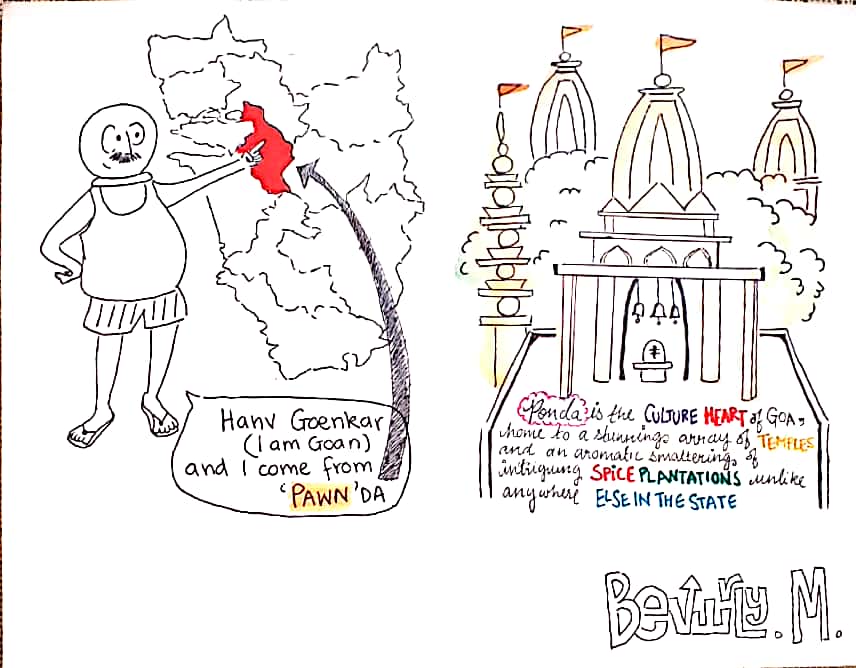 Hanv Goenkar
(I am Goan)
and I come from
'PAWN'DA
Ponda is the CULTURE HEART of GOA,
home to a stunnings array of TEMPLES
and an aromatic smatterings of
intriguing SPICE PLANTATIONS unlike
anywhere ELSE IN THE STATE
BEVERLY. M.